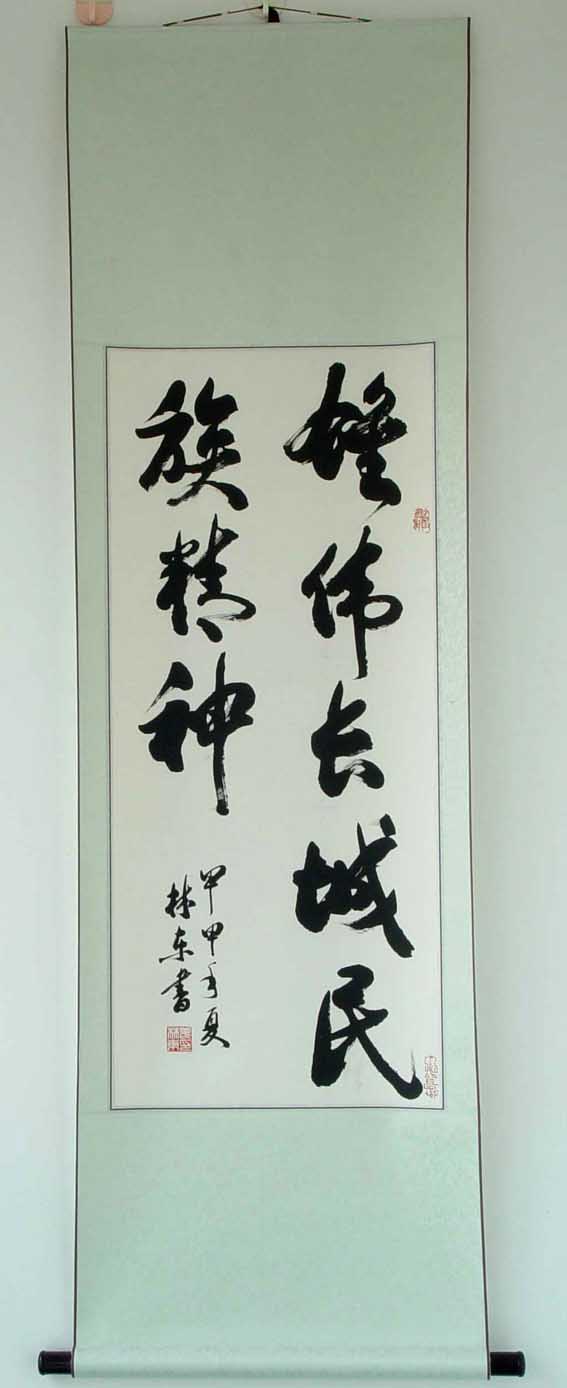 雄伟长城民
族精神
甲申年夏
林东书